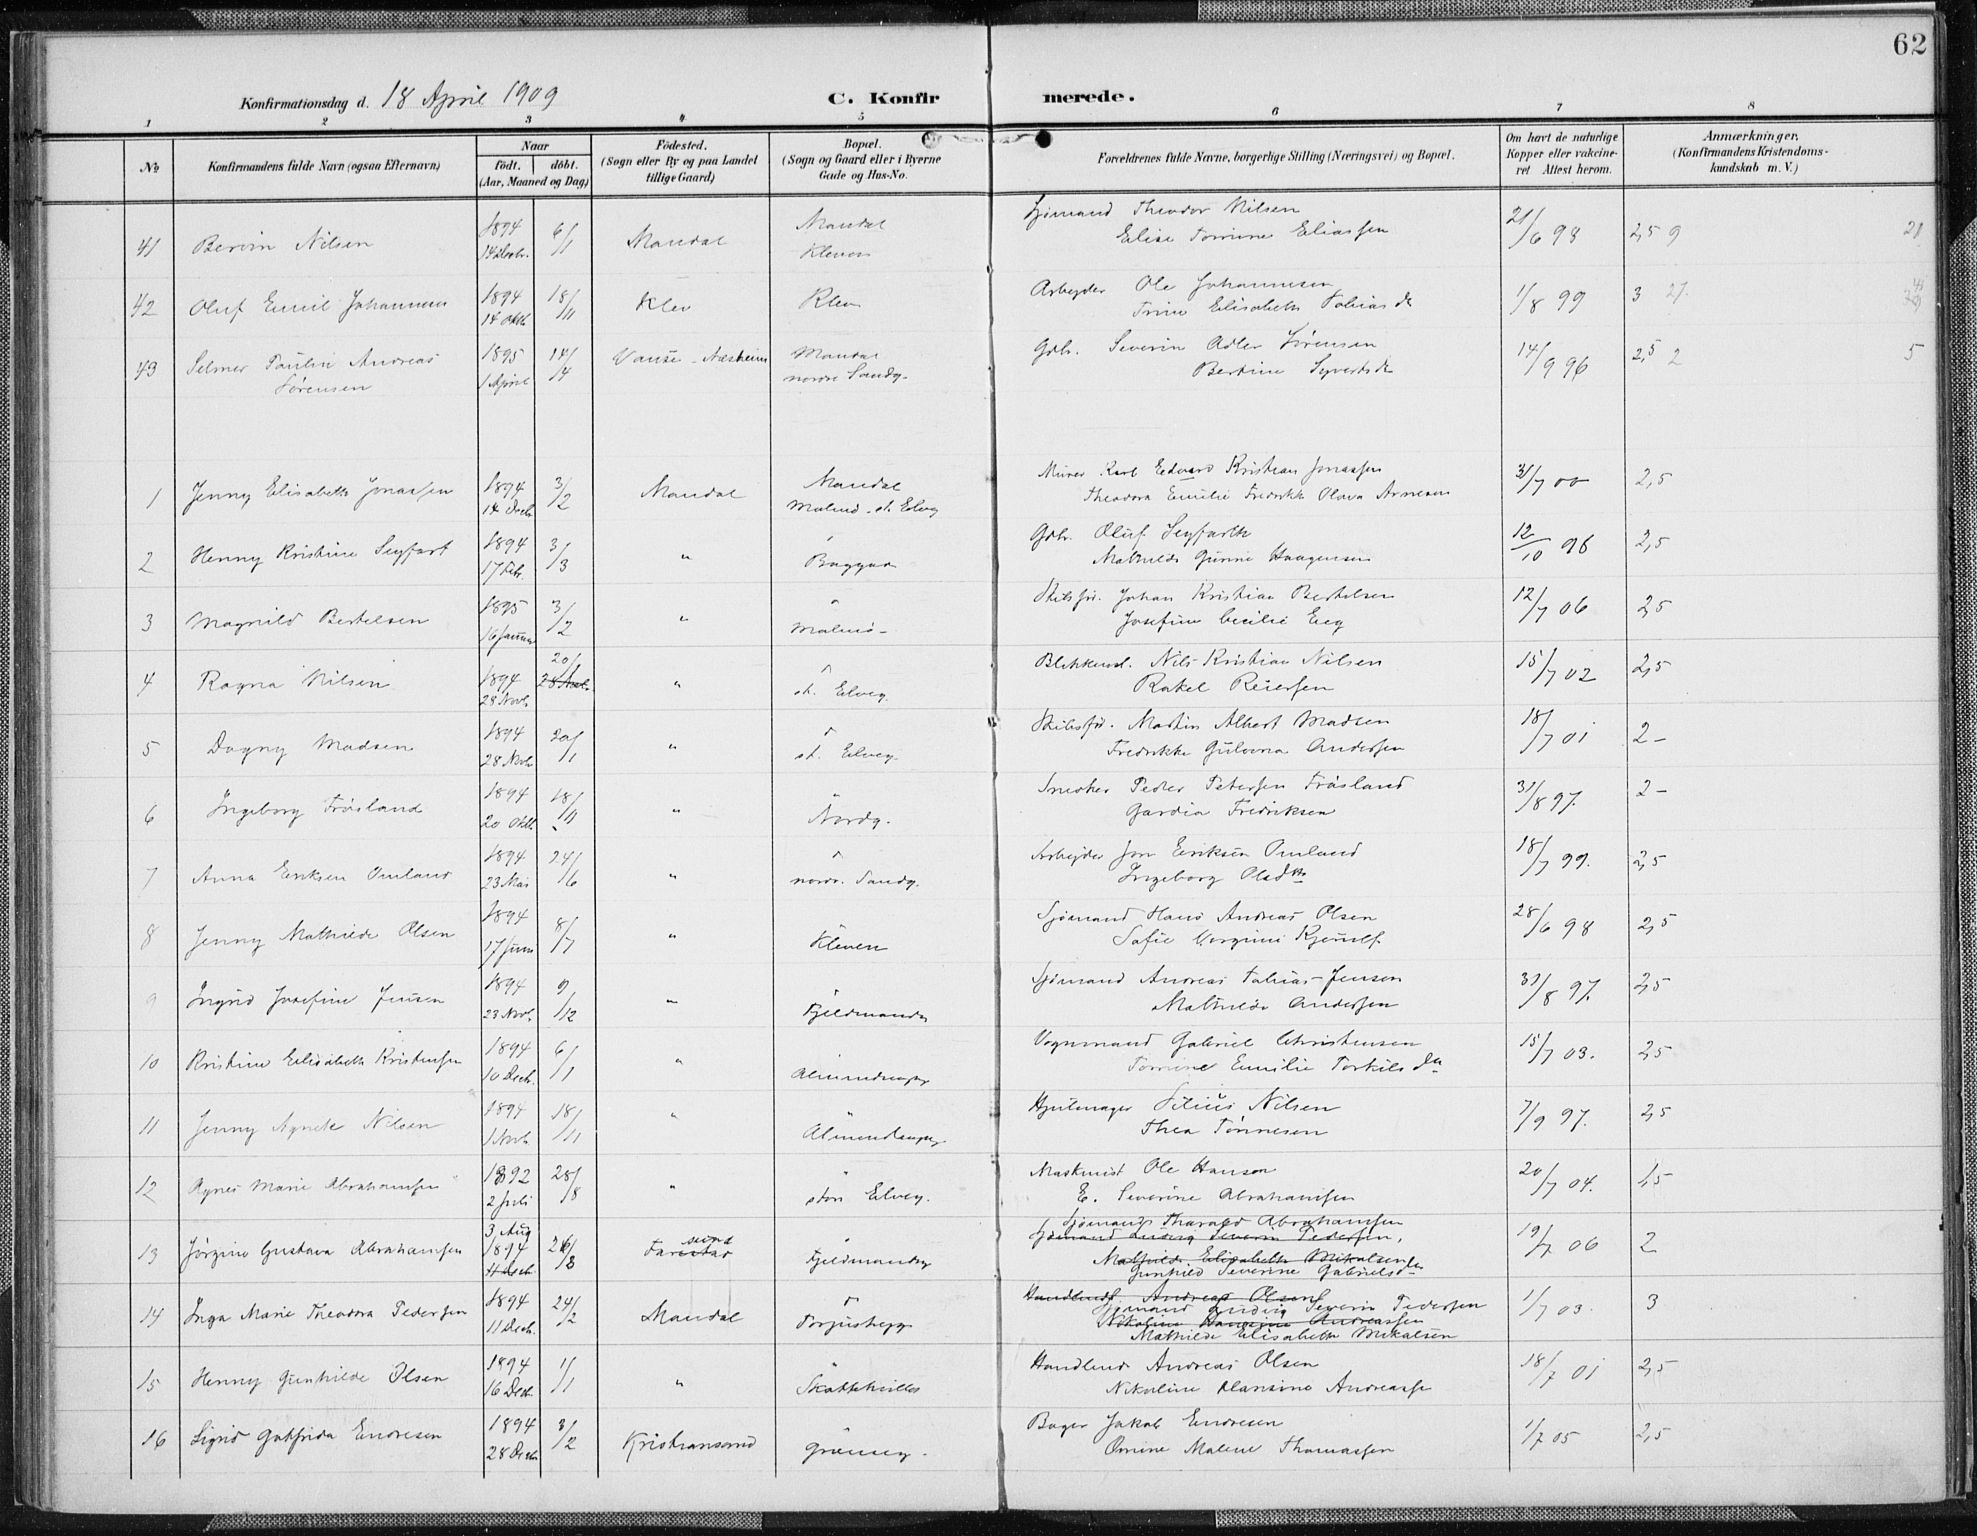 62
Konfirmationsdag d. 18 April 1909 C. Konfirmerede.
1 2 3 4 5 6 7 8
No
Konfirmandens fulde Navn (ogsaa Efternavn)
Naar
født. døbt.
(Aar, Maaned og Dag)
Fødested.
(Sogn eller By og paa Landet
tillige Gaard)
Bopæl.
(Sogn og Gaard eller i Byerne
Gade og Hus-No.
Forældrenes fulde Navne, borgerlige Stilling (Næringsvei) og Bopæl.
Om havt de naturlige
Kopper eller vakcine-
ret Attest herom.
Anmærkninger.
(Konfirmandens Kristendoms-
kundskab m. V.)
41 Bervin Nilsen 1894 6/1 Mandal Mandal Sjømand Theodor Nilsen 21/6 98 2,5 9 21
14 Decbr. Kleven Elise Tomine Eliassen
42 Oluf Emil Johannesen 1894 18/11 Klev Kleven Arbeyder Ole Johannesen 1/8 99 3 27.
14 Oktb. Trine Elisabeth Tobiasdr
43 Selmer Paulin Andreas 1895 14/4 Vanse - Næsheim Mandal Gdbr. Severin Adler Sørensen 14/9 96 2,5 2 5
Sørensen 1 April nordre Sandg. Bertine Syvertsdr
1 Jenny Elisabeth Jonassen 1894 3/2 Mandal Mandal Murer Karl Edvard Kristian Jonassen 31/7 00 2,5
14 Decb. Malmø - st. Elveg Theodora Emilie Fredrikke Olava Arnesen
2 Henny Kristine Seyfart 1894 3/3 " Gdbr. Oluf Seyfarth 12/10 96 2,5
17 Feb. Baggae Mathilde Gurine Haagensen
3 Magnild Bertelsen 1895 3/2 " " Skibsfø. Johan Kristian Bertelsen 12/7 06 2,5
16 Januar Malmø - Josefine Cecilie Eeg
4 Ragna Nilsen 1894 20/1 28 Novb. " " Blikkensl. Nils Kristian Nilsen 15/7 02 2,5
28 Novb. st. Elveg. Rakel Reiersen
5 Dagny Madsen 1894 20/1 " " Skibsfø. Martin Albert Madsen 18/7 01 2 -
28 Novb. st. Elveg. Fredrikke Gulovna Andersen
6 Ingeborg Frøsland 1894 18/11 " " Snedker Peder Petersen Frøsland 31/8 97. 2 -
20 Oktb. Nordg. Gardia Fredriksen
7 Anna Eriksen Omland 1894 24/6 " " Arbeyder Jon Eriksen Omland 18/7 99. 2,5
23 Mai nordr. Sandg. Ingeborg Olsdtr
8 Jenny Mathilde Olsen 1894 8/7 " Sjømand Hans Andreas Olsen 28/6 98 2,5
17 Juni Kleven Sofie Jorgine Kjømlef
9 Ingrid Josefine Jensen 1894 9/12 " " Sjømand Andreas Tobias Jensen 31/8 97. 2,5
23 Novb. Fjeldmandsg Mathilde Andersen
10 Kristine Elisabeth Kristensen 1894 6/1 " " Vognmand Gabriel Christensen 15/7 03. 2,5
10 Decb. Almendingsg Tomine Emilie Torkilsdtr
11 Jenny Agnete Nilsen 1894 18/11 " " Hjulmager Silius Nilsen 7/9 97. 2,5
1 Novb. Almendingsg Thea Tønnesen
12 Agnes Marie Abrahamsen 1892 28/8 " " Maskinist Ole Hansen 20/7 04. 1,5
2 Juli stor Elveg. E. Severine Abrahamsen
3 Aug sund Sjømand Tharald Abrahamsen
13 Jørgine Gustava Abrahamsen 1894 26/8 Farestad " Sjømand Ludvig Severin Pedersen, 19/7 06 2
11 Decb. Fjeldmandsg Mathilde Elisabeth Mikalsen
Gunhild Severine Gabrielsdr
14 Inga Marie Theodora Pedersen 1894 24/2 Mandal " Handlende Andreas Olsen 1/7 03. 3
Sjømand Ludvig Severin Pedersen
11 Decb. Torjusheg Nikoline Hansine Andreassen
Mathilde Elisabeth Mikalsen
15 Henny Gunhilde Olsen 1894 1/1 " Handlend Andreas Olsen 18/7 01 2,5
16 Decb. Skattehvilles Nikoline Hansine Andreasse
16 Sigrid Gotfrida Endresen 1894 3/2 Kristianssand " Bager Jakob Endresen 1/7 05 2,5
28 Decb. Grønneg. Omine Malene Thomassen